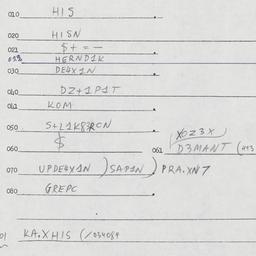 010 HIS
020 HISN
021 $+ = -
022 HERND1K
030 DE4X1N
040 DZ+1P1T
041 KOM
050 S+L1K83RCN
060 $
061 X0Z3X / D3MANT (413
070 UPDE4X1N ) SAP1N ) PRA.XN7
080 GREPC
01 KA.XHIS (/034084